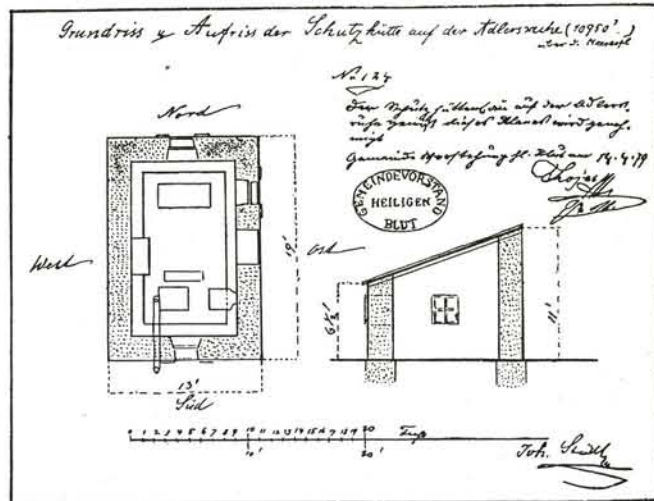 Grundriss u Aufriss der Schutzhütte auf der Adlersruhe (10950'.)
über d. Meeresfl
No 124
Der Schutzhüttenbau auf der Adlers-
ruhe gemäß dieses Planes wird geneh-
migt
Gemeinde Vorstehung Hl. Blut am 14.4.79
GEMEINDEVORSTAND
HEILIGEN
BLUT
Nord
West
Ost
Süd
19'
13'
6½'
11'
0 1 2 3 4 5 6 7 8 9 10 11 12 13 14 15 16 17 18 19 20 Fuß
10' 20'
Joh.